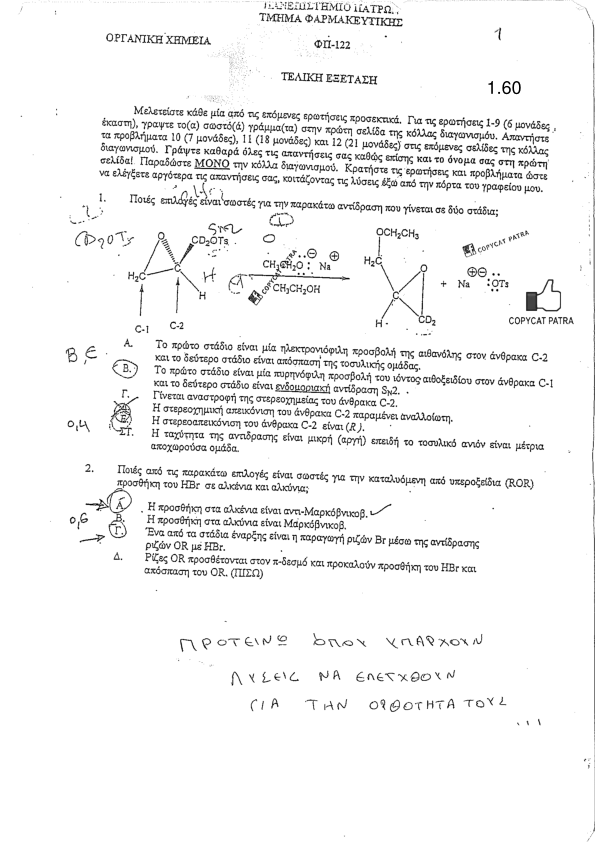 ΠΑΝΕΠΙΣΤΗΜΙΟ ΠΑΤΡΩΝ
ΤΜΗΜΑ ΦΑΡΜΑΚΕΥΤΙΚΗΣ
ΟΡΓΑΝΙΚΗ ΧΗΜΕΙΑ
ΦΠ-122
1
ΤΕΛΙΚΗ ΕΞΕΤΑΣΗ
1.60
Μελετείστε κάθε μία από τις επόμενες ερωτήσεις προσεκτικά. Για τις ερωτήσεις 1-9 (6 μονάδες
έκαστη), γραψτε το(α) σωστό(ά) γράμμα(τα) στην πρώτη σελίδα της κόλλας διαγωνισμού. Απαντήστε
τα προβλήματα 10 (7 μονάδες), 11 (18 μονάδες) και 12 (21 μονάδες) στις επόμενες σελίδες της κόλλας
διαγωνισμού. Γράψτε καθαρά όλες τις απαντήσεις σας καθώς επίσης και το όνομα σας στη πρώτη
σελίδα! Παραδώστε ΜΟΝΟ την κόλλα διαγωνισμού. Κρατήστε τις ερωτήσεις και προβλήματα ώστε
να ελέγξετε αργότερα τις απαντήσεις σας, κοιτάζοντας τις λύσεις έξω από την πόρτα του γραφείου μου.
1. Ποιές επιλογές είναι σωστές για την παρακάτω αντίδραση που γίνεται σε δύο στάδια;
CD2OTs
SN2
O
CD2OTs
H2C
C
H
H
C-1
C-2
CH3CH2O Na
CH3CH2OH
COPYCAT PATRA
OCH2CH3
H2C
O
C
H
CD2
+ Na OTs
COPYCAT PATRA
COPYCAT PATRA
Β, Ε
Α. Το πρώτο στάδιο είναι μία ηλεκτρονιόφιλη προσβολή της αιθανόλης στον άνθρακα C-2
και το δεύτερο στάδιο είναι απόσπαση της τοσυλικής ομάδας.
Β. Το πρώτο στάδιο είναι μία πυρηνόφιλη προσβολή του ιόντος αιθοξειδίου στον άνθρακα C-1
και το δεύτερο στάδιο είναι ενδομοριακή αντίδραση SN2.
Γ. Γίνεται αναστροφή της στερεοχημείας του άνθρακα C-2.
Η στερεοχημική απεικόνιση του άνθρακα C-2 παραμένει αναλλοίωτη.
0,4
Ε. Η στερεοαπεικόνιση του άνθρακα C-2 είναι (R).
ΣΤ. Η ταχύτητα της αντιδρασης είναι μικρή (αργή) επειδή το τοσυλικό ανιόν είναι μέτρια
αποχωρούσα ομάδα.
2. Ποιές από τις παρακάτω επιλογές είναι σωστές για την καταλυόμενη από υπεροξείδια (ROR)
προσθήκη του HBr σε αλκένια και αλκύνια;
Α. Η προσθήκη στα αλκένια είναι αντι-Μαρκόβνικοβ.
0,6
Β. Η προσθήκη στα αλκύνια είναι Μαρκόβνικοβ.
Γ. Ένα από τα στάδια έναρξης είναι η παραγωγή ριζών Br μέσω της αντίδρασης
ριζών OR με HBr.
Δ. Ρίζες OR προσθέτονται στον π-δεσμό και προκαλούν προσθήκη του HBr και
απόσπαση του OR. (ΠΙΣΩ)
ΠΡΟΤΕΙΝΩ ΟΠΟΥ ΥΠΑΡΧΟΥΝ
ΛΥΣΕΙΣ ΝΑ ΕΛΕΓΧΘΟΥΝ
ΓΙΑ ΤΗΝ ΟΡΘΟΤΗΤΑ ΤΟΥΣ
...